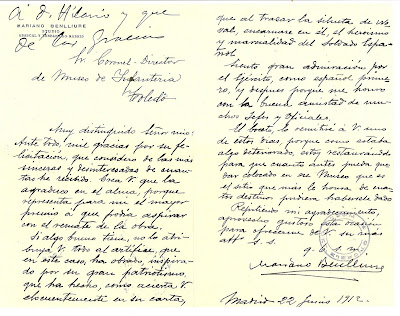 á D. Hilario y que
de las gracias
MARIANO BENLLIURE
ESTUDIO
Sr. Coronel-Director
de Museo de Infantería
Toledo
Muy distinguido Señor mio:
Ante todo, mil gracias por su fe-
licitacion, que considero de las más
sinceras y desinteresadas de cuan-
tas he recibido. Crea V. que la
agradezco en el alma, porque
representa para mi el mayor
premio á que podia aspirar
con el remate de la obra.
Si algo bueno tiene, no lo atri-
buya V. todo al artifice, que
en este caso, ha obrado, inspira-
do por su gran patriotismo,
que ha hecho, como acierta V.
elocuentemente en su carta,
que al trazar la silueta de
val, encarnase en él, el heroismo
y marcialidad del Soldado Español.
Siento gran admiración por
el Ejército, como español prime-
ro, y despues porque me honro
con la buena amistad de mu-
chos Jefes y Oficiales.
El boceto, lo remitiré á V. uno
de estos dias, porque como estaba
algo deteriorado, estoy restaurandolo
para que cuanto antes pueda que-
dar colocado en ese Museo que es
el sitio que más le honra de cuan-
tos destinos pudiera haberle dado
Repitiendo mi agradecimiento,
aprovecho gustoso esta ocasión
para ofrecerme de V. su más
att S. S.
q. e. s. m.
Mariano Benlliure
Madrid 22 Junio 1912.